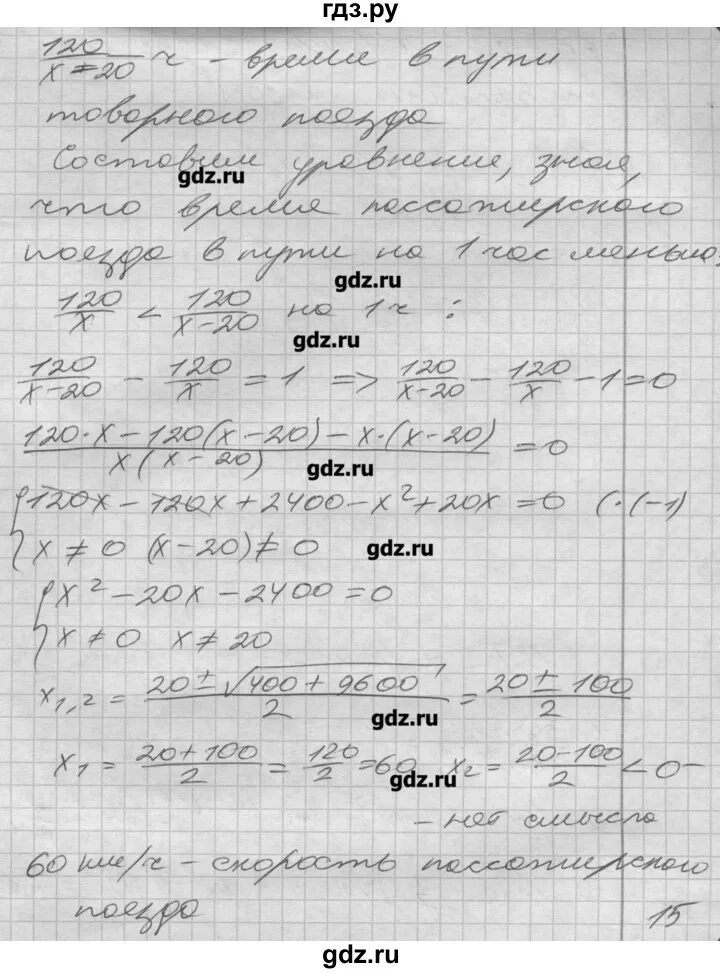 гдз.ру
120/(x-20) ч - время в пути
товарного поезда
Составим уравнение, зная,
gdz.ru
что время пассажирского
поезда в пути на 1 час меньше:
gdz.ru
120/x < 120/(x-20) на 1 ч :
gdz.ru
120/(x-20) - 120/x = 1 => 120/(x-20) - 120/x - 1 = 0
(120·x - 120(x-20) - x·(x-20))/(x(x-20)) = 0
gdz.ru
{120x - 120x + 2400 - x² + 20x = 0 (·(-1)
x ≠ 0 (x-20) ≠ 0
gdz.ru
{x² - 20x - 2400 = 0
x ≠ 0 x ≠ 20
x₁,₂ = (20 ± √(400 + 9600))/2 = (20 ± 100)/2
gdz.ru
x₁ = (20+100)/2 = 120/2 = 60 x₂ = (20-100)/2 < 0 -
gdz.ru
- нет смысла
60 км/ч - скорость пассажирского
поезда
15
gdz.ru